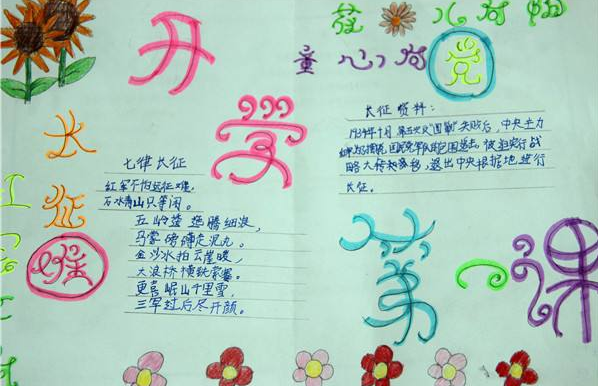 开
学
第
一
课
童心向党
长
征
七律长征
红军不怕远征难,
水青山只等闲。
五岭逶迤腾细浪,
乌蒙磅礴走泥丸。
金沙水拍云崖暖,
大桥横铁索寒。
更喜岷山千里雪,
三军过后尽开颜。
长征资料:
1934年10月 第五次反"围剿"失败后,中央主力
红军为摆脱国民党军队的包围追击,被迫实行战
略大转移,退出中央根据地,进行
长征。